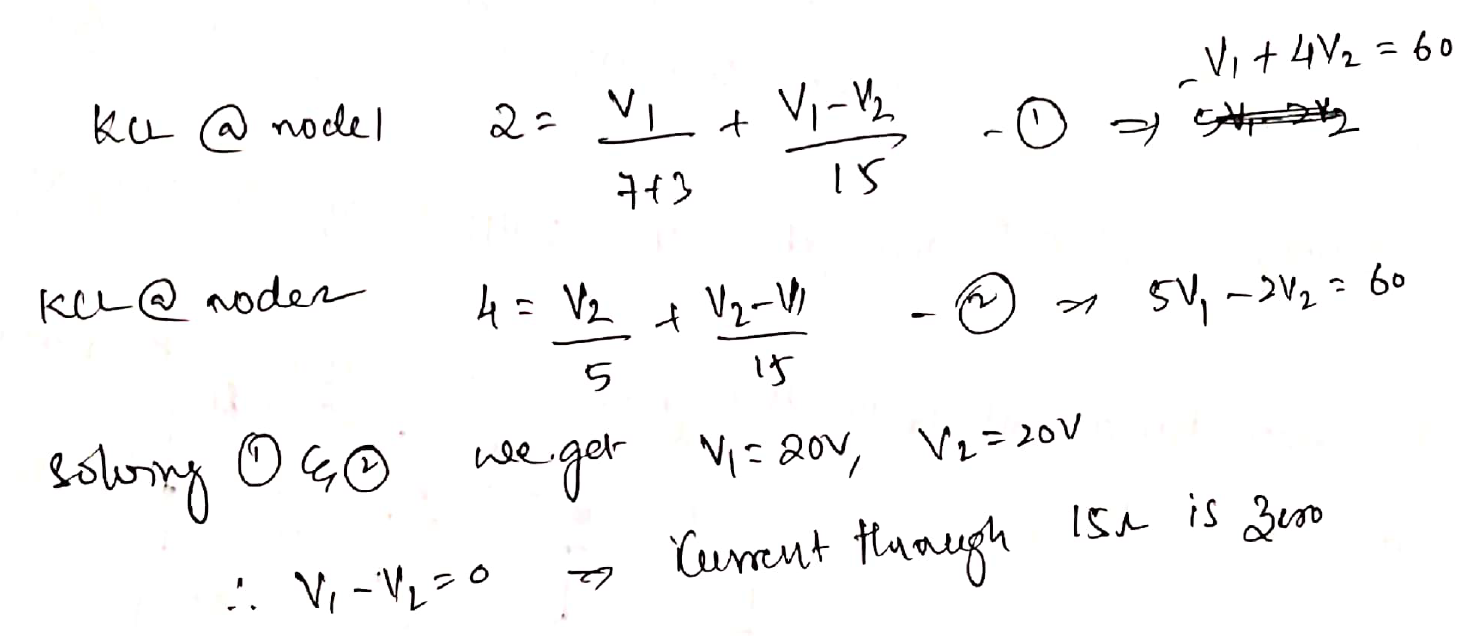 KCL @ node1 2 = V₁/(7+3) + (V₁-V₂)/15 - ① ⇒ -V₁ + 4V₂ = 60
KCL @ node2 4 = V₂/5 + (V₂-V₁)/15 - ② ⇒ 5V₁ - 2V₂ = 60
solving ① & ② we get V₁ = 20V, V₂ = 20V
∴ V₁ - V₂ = 0 ⇒ Current through 15Ω is Zero